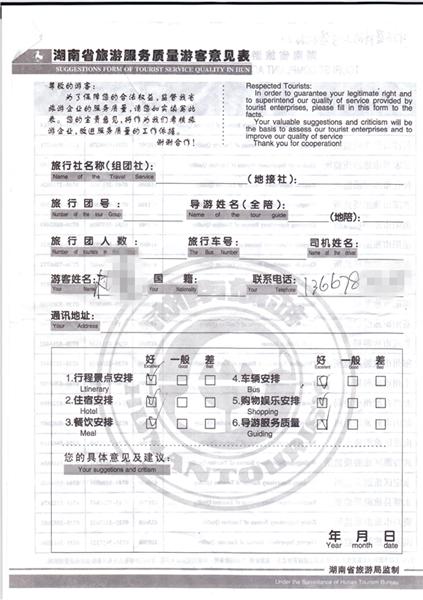 湖南省旅游服务质量游客意见表
SUGGESTIONS FORM OF TOURIST SERVICE QUALITY IN HUN
尊敬的游客:
为了保障您的合法权益,监督我省
旅游企业的服务质量,请您如实填写此
表。您的宝贵意见,将作为我们考核旅
游企业,改进服务质量的工作依据。
谢谢合作!
Respected Tourists:
In order to guarantee your legitimate right and
to superintend our quality of service provided by
tourist enterprises, please fill in this form to the
facts.
Your valuable suggestions and criticism will
be the basis to assess our tourist enterprises and to
improve our quality of service
Thank you for cooperation!
旅行社名称(组团社): (地接社):
Name of the Travel Service
旅行团号: 导游姓名(全陪): (地陪):
Number of the tour Group Name of the tour guide
旅行团人数: 旅行车号: 司机姓名:
Number of tourists in this group The Bus Number Name of the driver
游客姓名: 国籍: 联系电话: 136678
Your Name Your Nationality Your Telephone
通讯地址:
Your Address
好 一般 差 好 一般 差
Excellent Good Bad Excellent Good Bad
1.行程景点安排 4.车辆安排
Ltinerary Bus
2.住宿安排 5.购物娱乐安排
Hotel Shopping
3.餐饮安排 6.导游服务质量
Meal Guiding
您的具体意见及建议:
Your suggetions and critism
年 月 日
Year month date
湖南省旅游局监制
Under the Surveillance of Hunan Tourism Bureau